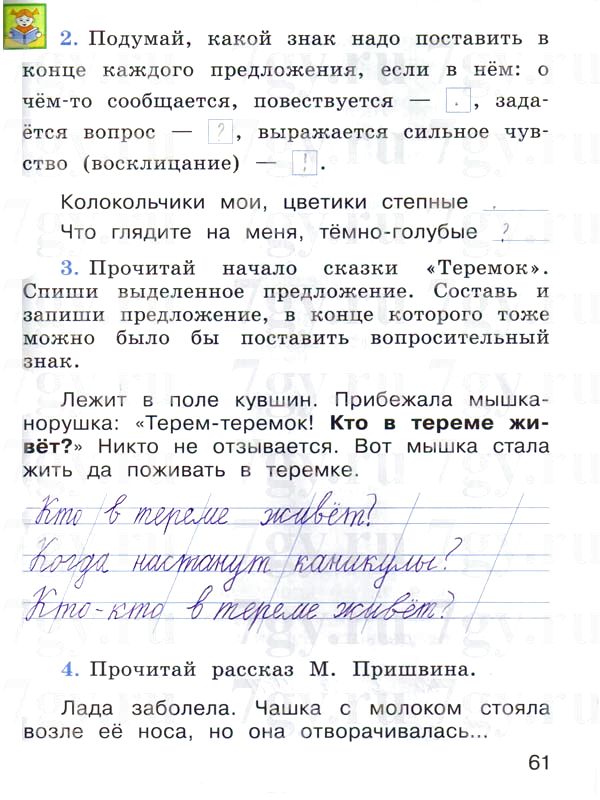 2. Подумай, какой знак надо поставить в
конце каждого предложения, если в нём: о
чём-то сообщается, повествуется — . , зада-
ётся вопрос — ? , выражается сильное чув-
ство (восклицание) — ! .
Колокольчики мои, цветики степные ,
Что глядите на меня, тёмно-голубые ?
3. Прочитай начало сказки «Теремок».
Спиши выделенное предложение. Составь и
запиши предложение, в конце которого тоже
можно было бы поставить вопросительный
знак.
Лежит в поле кувшин. Прибежала мышка-
норушка: «Терем-теремок! Кто в тереме жи-
вёт?» Никто не отзывается. Вот мышка стала
жить да поживать в теремке.
Кто в тереме живёт?
Когда настанут каникулы?
Кто-кто в тереме живёт?
4. Прочитай рассказ М. Пришвина.
Лада заболела. Чашка с молоком стояла
возле её носа, но она отворачивалась...
61